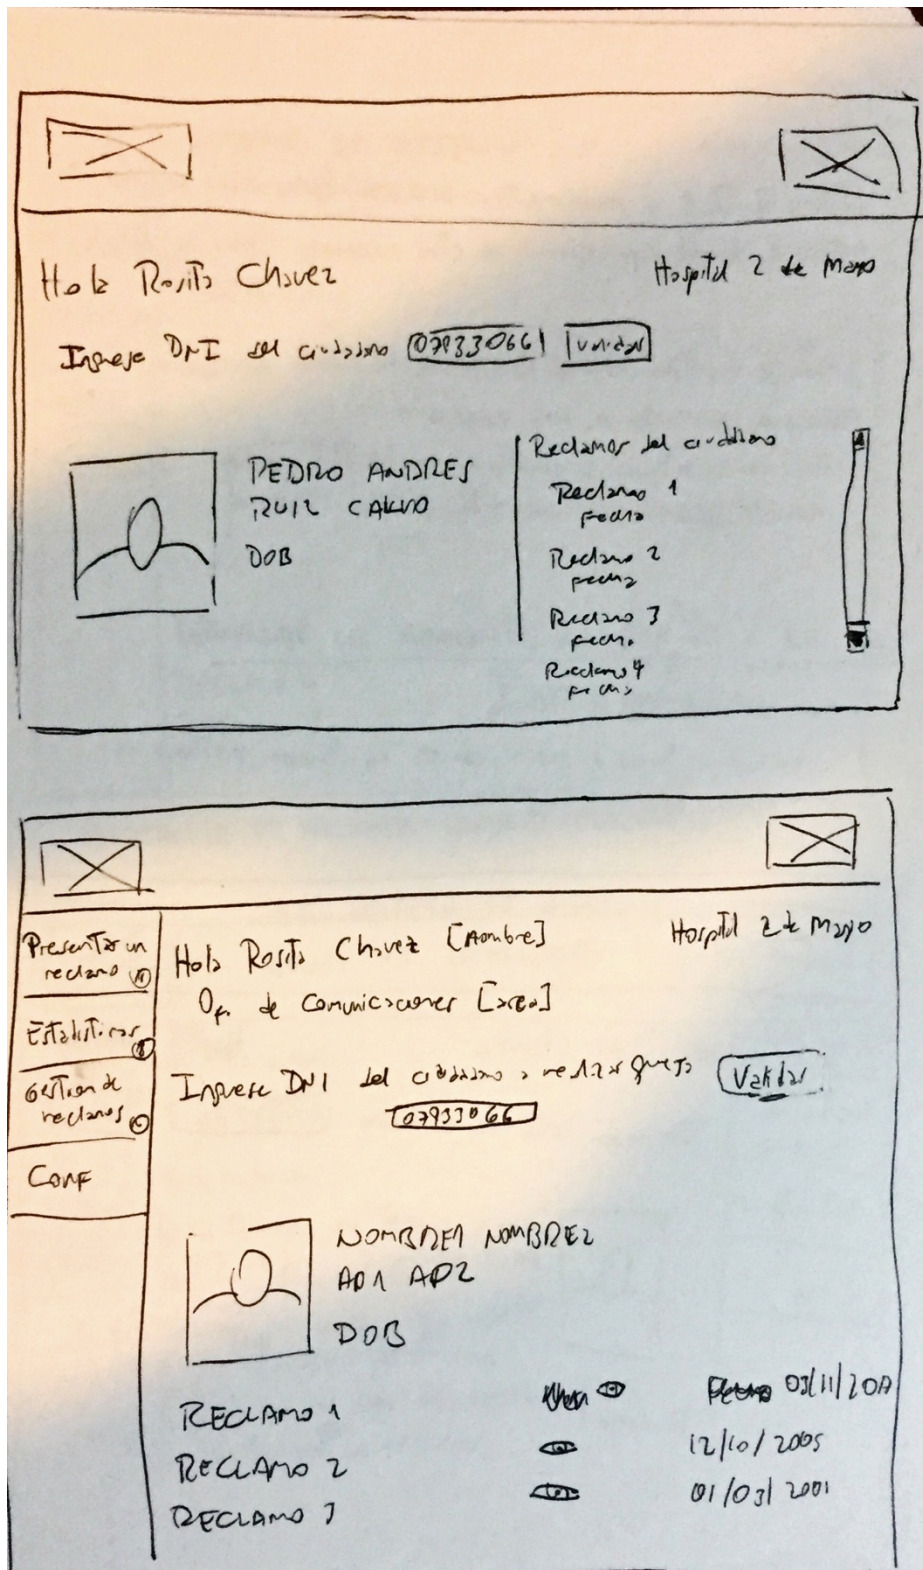 Hola Rosita Chavez
Hospital 2 de Mayo
Ingrese DNI del ciudadano 07933066 Validar
PEDRO ANDRES
RUIZ CALVO
DOB
Reclamos del ciudadano
Reclamo 1
Fecha
Reclamo 2
Fecha
Reclamo 3
Fecha
Reclamo 4
Fecha
Presentar un
reclamo
Estadisticas
Gestion de
reclamos
Conf
Hola Rosita Chavez [Nombre]
Hospital 2 de Mayo
Of. de Comunicaciones [area]
Ingrese DNI del ciudadano a realizar queja Validar
07933066
NOMBRE1 NOMBRE2
AP1 AP2
DOB
RECLAMO 1 03/11/20
RECLAMO 2 12/10/2005
RECLAMO 3 01/03/2001